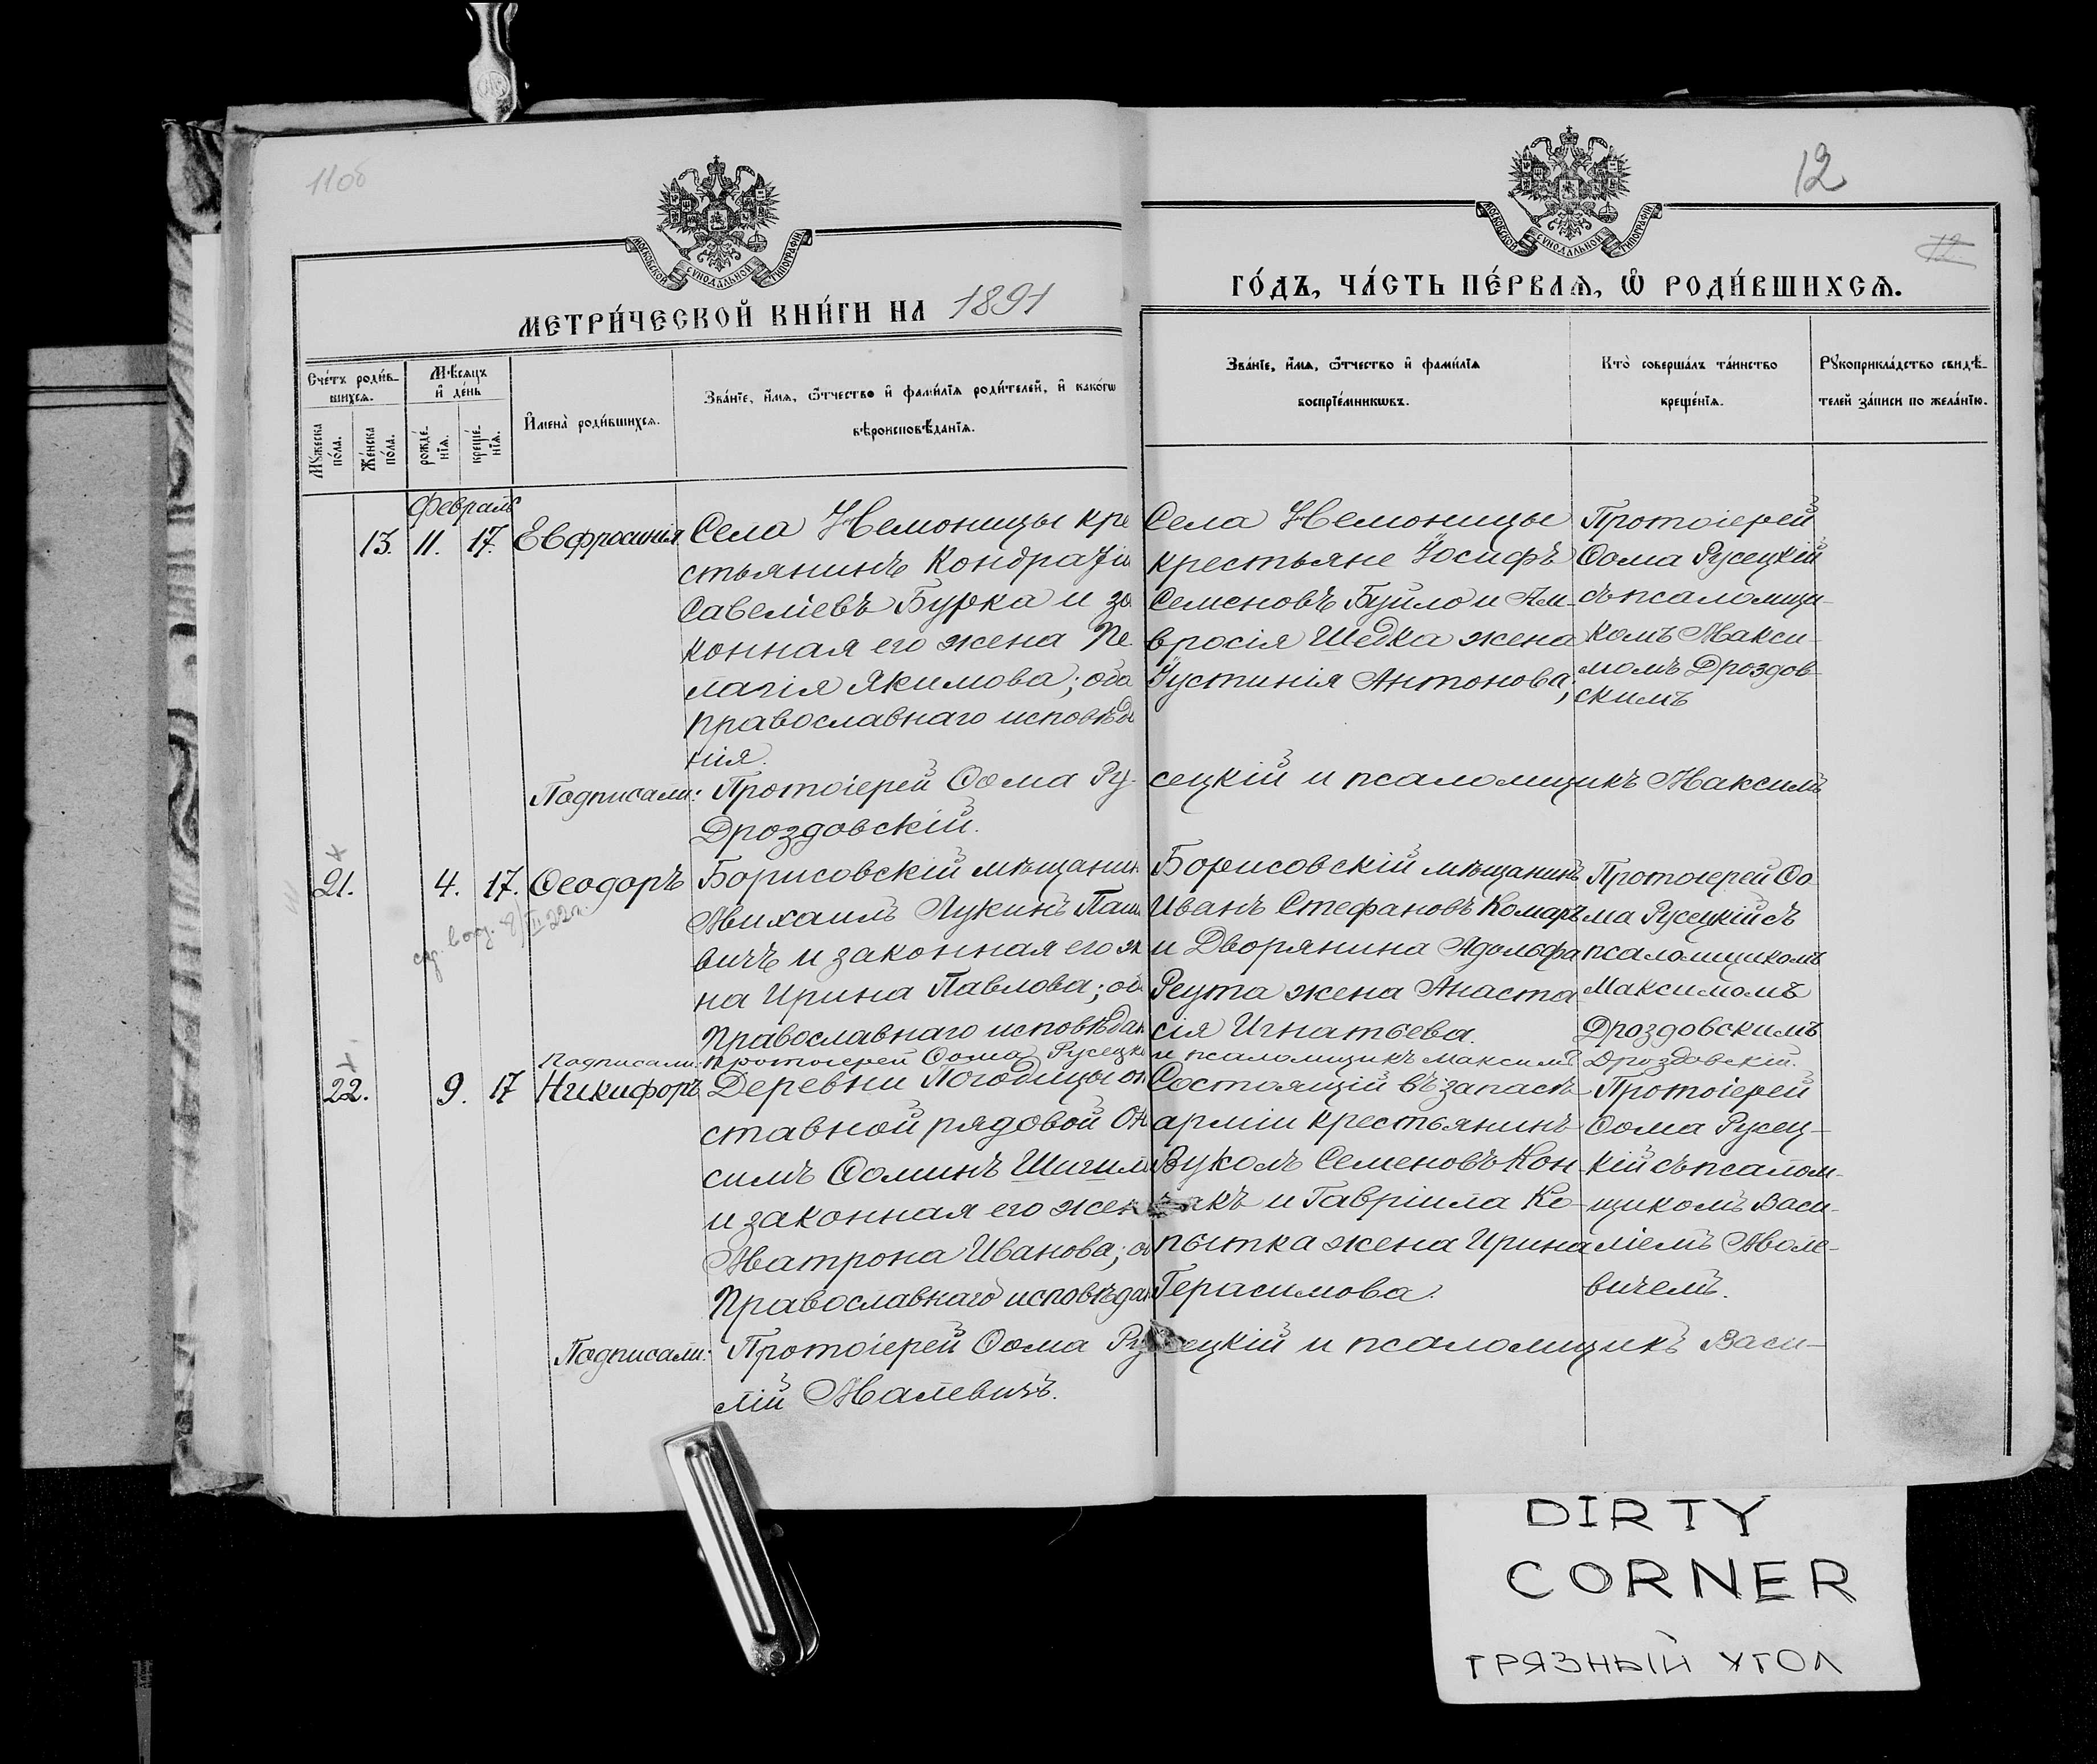 11об
12
12
МОСКОВСКОЙ СУНОДАЛЬНОЙ ТИПОГРАФІИ
МОСКОВСКОЙ СУНОДАЛЬНОЙ ТИПОГРАФІИ
МЕТРИ́ЧЕСКОЙ КНИ́ГИ НА 1891
ГО́ДЪ, ЧА́СТЬ ПЕ́РВАѦ, Ѡ҆ РОДИ́ВШИХСѦ.
Сче́тъ роди́в-
шихсѧ.
Мѣсяцъ
и҆ де́нь
Мꙋ́жеска
по́ла.
Же́нска
по́ла.
рожде́-
нїѧ.
креще́-
нїѧ.
И҆мена̀ роди́вшихсѧ.
Зва́нїе, и҆́мѧ, ѻ҆́тчество и҆ фами́лїѧ роди́телей, и҆ како́гѡ
вѣроисповѣ́данїѧ.
Зва́нїе, и҆́мѧ, ѻ҆́тчество и҆ фами́лїѧ
воспрїе́мникѡвъ.
Кто̀ соверша́лъ та́инство
креще́нїѧ.
Рꙋкоприкла́дство свидѣ́-
телей за́писи по жела́нїю.
Февраль
13. 11. 17. Евфросинія
Села Немоницы кре
стьянинъ Кондратій
Савеліевъ Бурка и за
конная его жена Пе
лагія Якимова; оба
православнаго исповѣда
нія.
Села Немоницы
крестьяне Іосифъ
Семеновъ Буйло и Ам-
вросія Шедка жена
Іустинія Антонова;
Протоіерей
Ѳома Русецкій
съ псаломщи-
комъ Макси-
момъ Дроздов-
скимъ
Подписали: Протоіерей Ѳома Ру- сецкій и псаломщикъ Максимъ
Дроздовскій.
21. 4. 17. Ѳеодоръ
Борисовскій мѣщанин
Михаилъ Лукинъ Паш
вичъ и законная его же
на Ирина Павлова; об
Православнаго исповѣдан
Борисовскій мѣщанинъ
Иванъ Стефановъ Комаръ
и Дворянина Адольфа
Реута жена Анаста
сія Игнатьева.
Протоіерей Ѳо
ма Русецкій съ
псаломщикомъ
Максимомъ
Дроздовскимъ
8/III 22г.
Подписали: Протоіерей Ѳома Русецкі и псаломщикъ Максимъ Дроздовскій.
22. 9. 17 Никифоръ
Деревни Погодицы от
ставной рядовой Он
симъ Ѳоминъ Шигил
и законная его жен
Матрона Иванова; об
Православнаго исповѣдан
Состоящій въ запасѣ
арміи крестьянинъ
Вуколъ Семеновъ Кон
акъ и Гавріила Ко-
пытка жена Ирина
Герасимова.
Протоіерей
Ѳома Русец-
кій съ псалом-
щикомъ Васи-
ліемъ Моле-
вичемъ.
Подписали: Протоіерей Ѳома Русецкій и псаломщикъ Васи-
лій Малевичъ.
DIRTY
CORNER
ГРЯЗНЫЙ УГОЛ